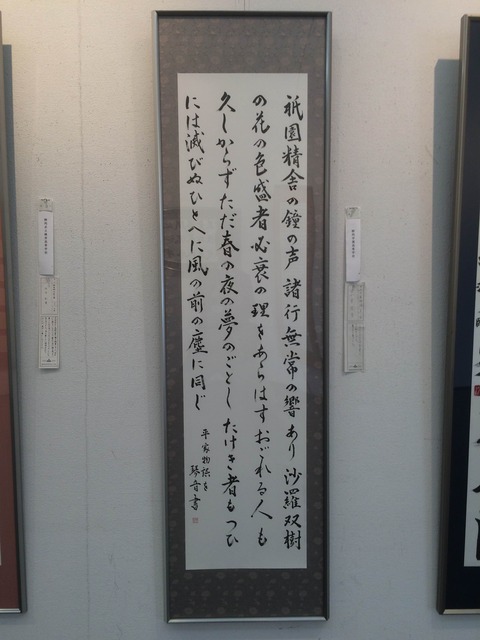 祇園精舎の鐘の声 諸行無常の響あり 沙羅双樹
の花の色盛者必衰の理をあらはすおごれる人も
久しからずただ春の夜の夢のごとし たけき者もつひ
には滅びぬひとへに風の前の塵に同じ
平家物語を
琴音書